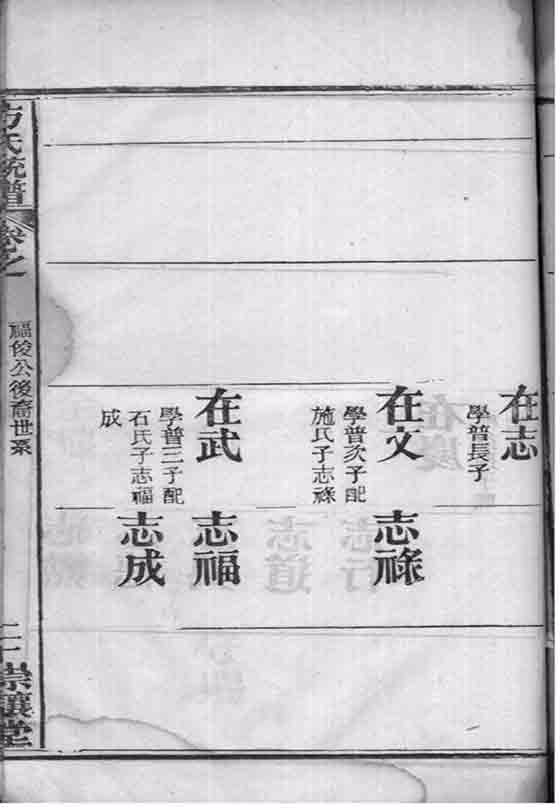 在志
學普長子
在文
學普次子配
施氏子志祿
志祿
在武
學普三子配
石氏子志福
成
志福
志成
方氏統譜
卷之
福俊公後裔世系
二十
崇讓堂